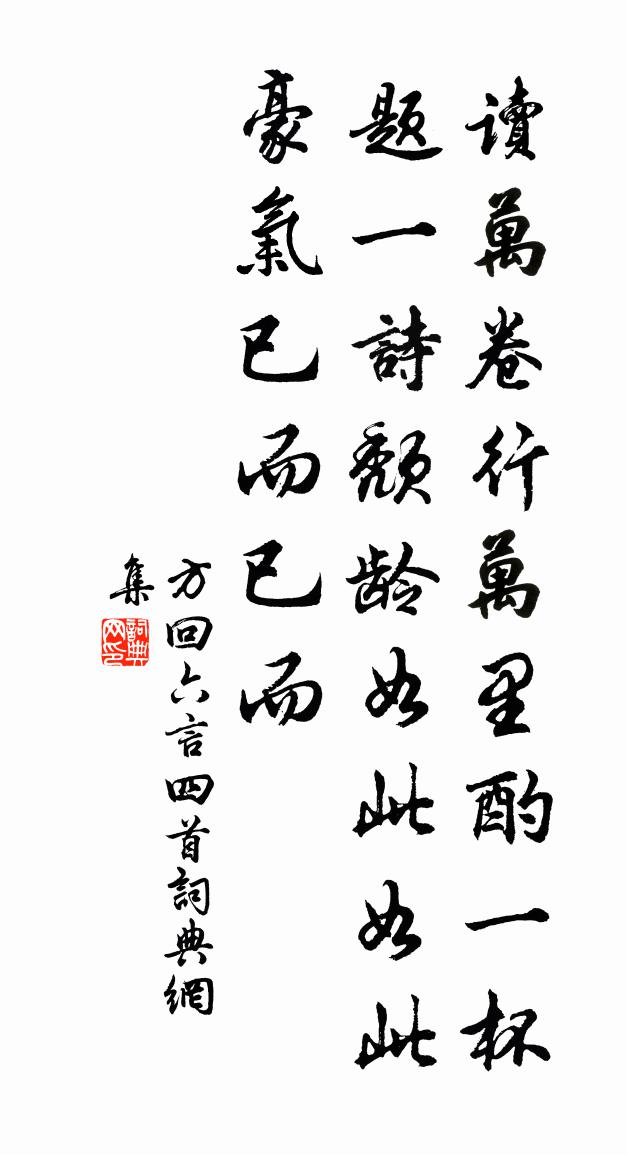 讀萬卷行萬里酌一杯
题一詩頽齡如此如此
豪氣已而已而
方回六言四首詞典網
集
詞典
网印